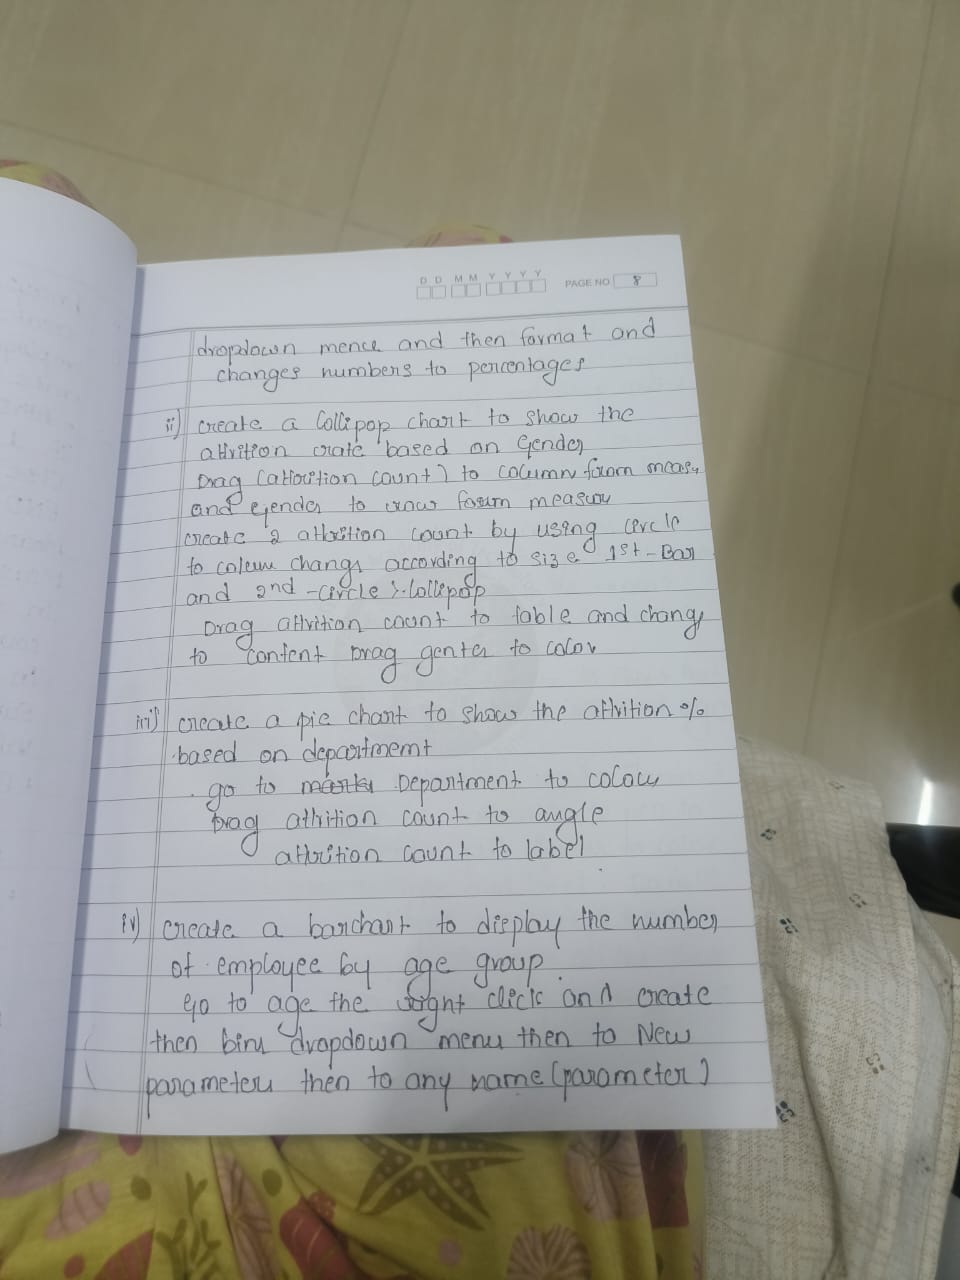 D D M M Y Y Y Y PAGE NO 8
dropdown mence and then format and
changes numbers to percentages
ii) create a lollipop chart to show the
attrition rate based on Gender
Drag (attrition count) to column from meas
and gender to row from measur
create 2 attrition count by using circle
to colum change according to size 1st-Bar
and 2nd -circle lollipop
Drag attrition count to table and chang
to content Drag genter to color
iii) create a pie chart to show the attrition %
based on department
go to Department to colour
Drag attrition count to angle
attrition count to label
iv) create a barchart to display the number
of employee by age group.
go to age the right click and create
then bins dropdown menu then to New
parameter then to any name (parameter)